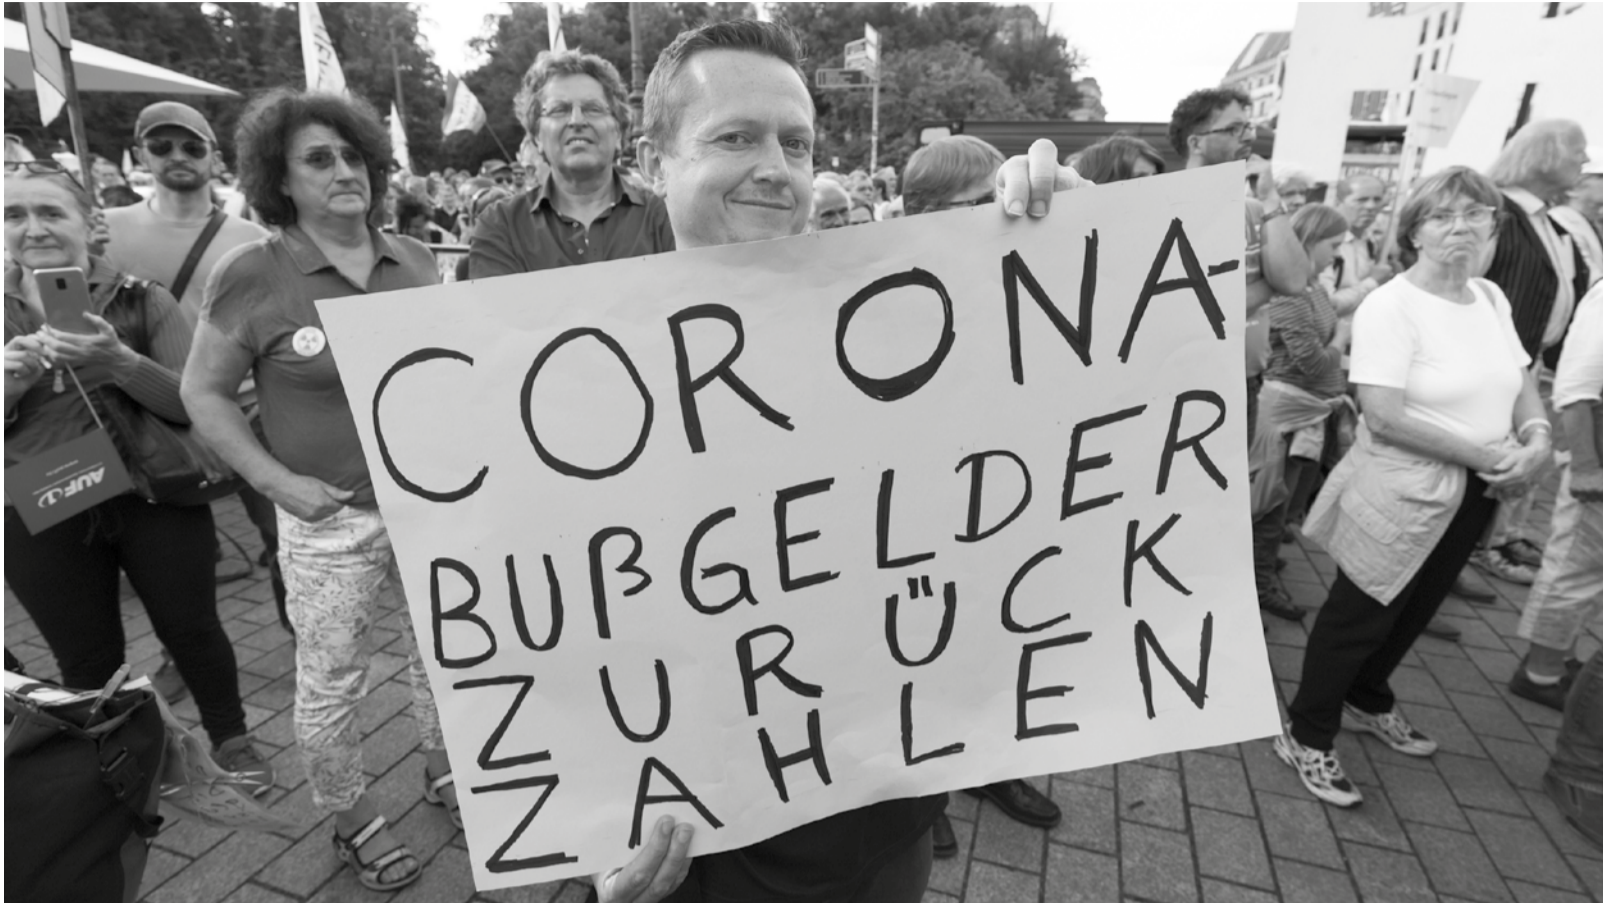 CORONA-
BUßGELDER
ZURÜCK
ZAHLEN
AUF1